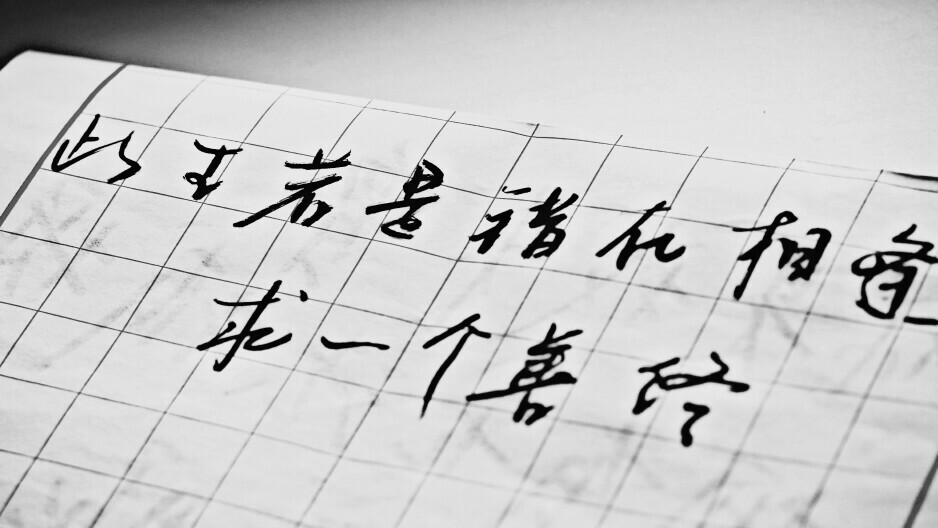 此生若是错在相逢
求一个善终